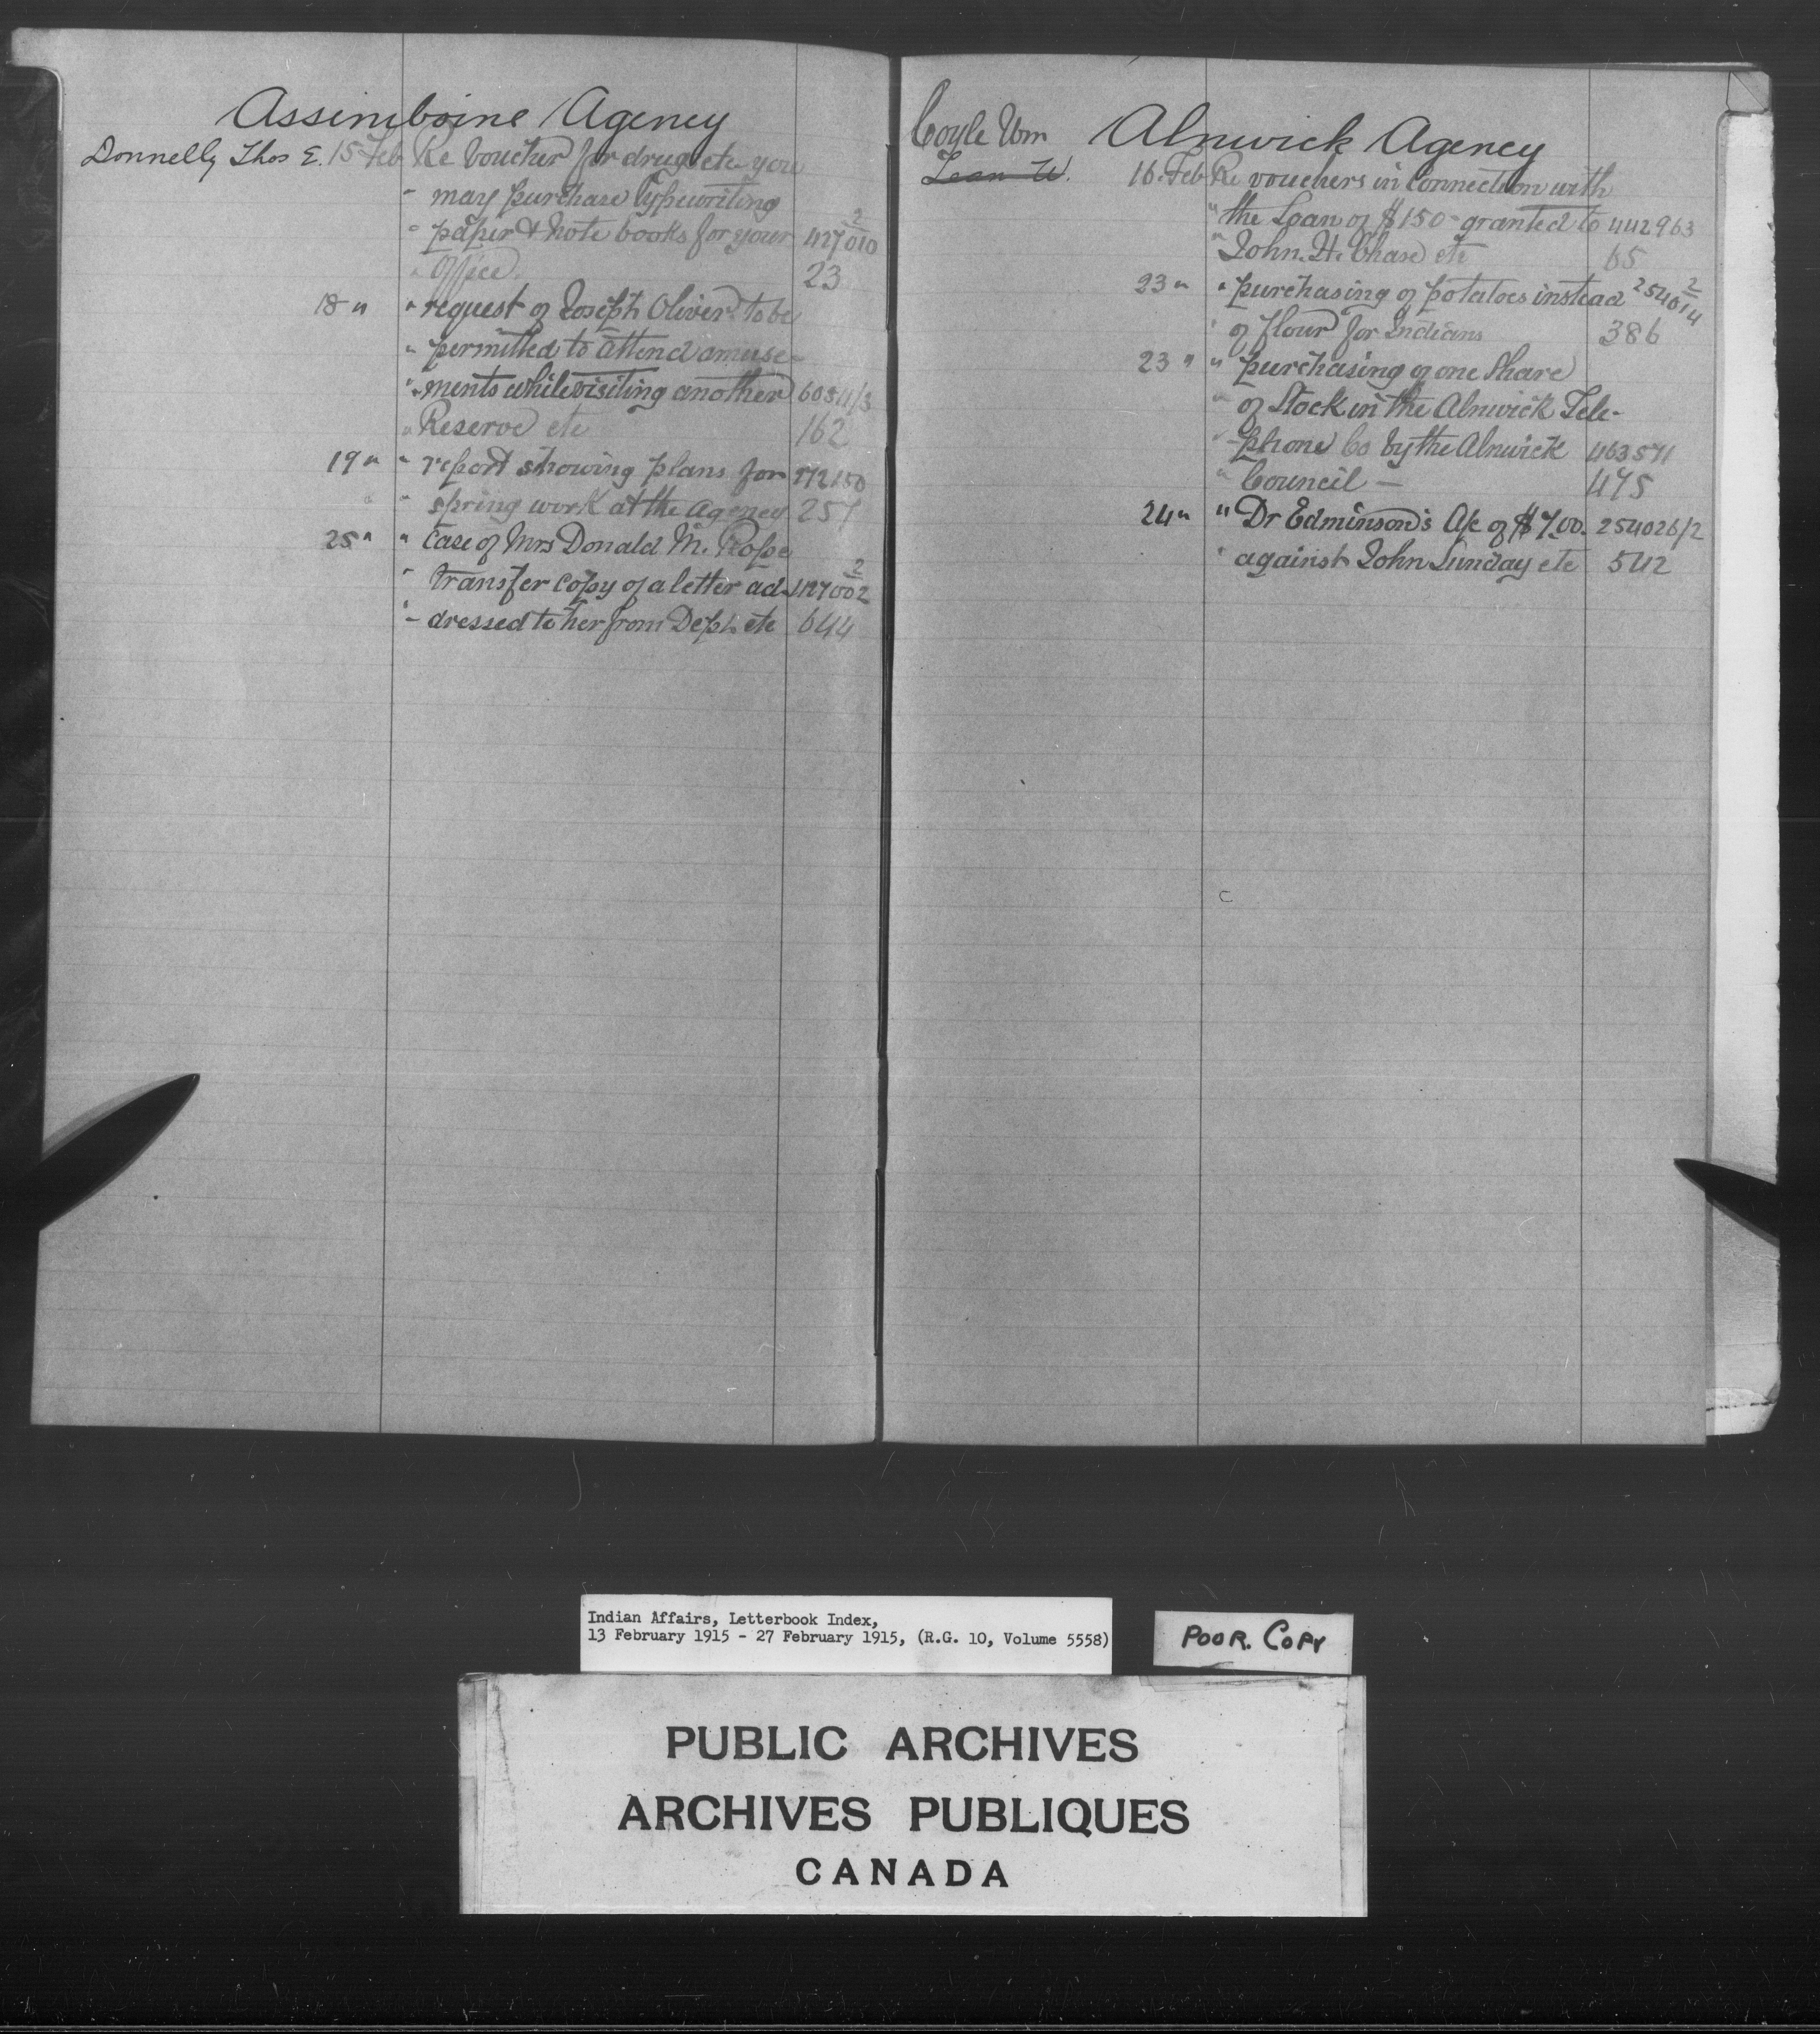 Assiniboine Agency
Donnelly Thos E. 15 Feb Re Voucher for drugs etc you
" may purchase typewriting
" paper & note books for your 427010/2
" Office. 23
18 " " request of Joseph Oliver to be
" permitted to attend amuse-
" ments while visiting another 60841/3
" Reserve etc 162
19 " " report showing plans for 772150
" " spring work at the Agency 257
25 " " Case of Mrs Donald M. Rosse
" transfer copy of a letter ad- 427002/2
" dressed to her from Dept. etc 644
Coyle Wm Alnwick Agency
16 Feb Re vouchers in connection with
" the Loan of $150- granted to 442963
" John. H. Chase etc 65
23 " " purchasing of potatoes instead 254014/2
" of flour for Indians 386
23 " " purchasing of one Share
" of Stock in the Alnwick Tele-
" phone Co by the Alnwick 463571
" Council — 475
24 " " Dr Edminson's A/c of $7.00. 254026/2
" against John Sunday etc 542
Indian Affairs, Letterbook Index,
13 February 1915 - 27 February 1915, (R.G. 10, Volume 5558)
POOR. COPY
PUBLIC ARCHIVES
ARCHIVES PUBLIQUES
CANADA